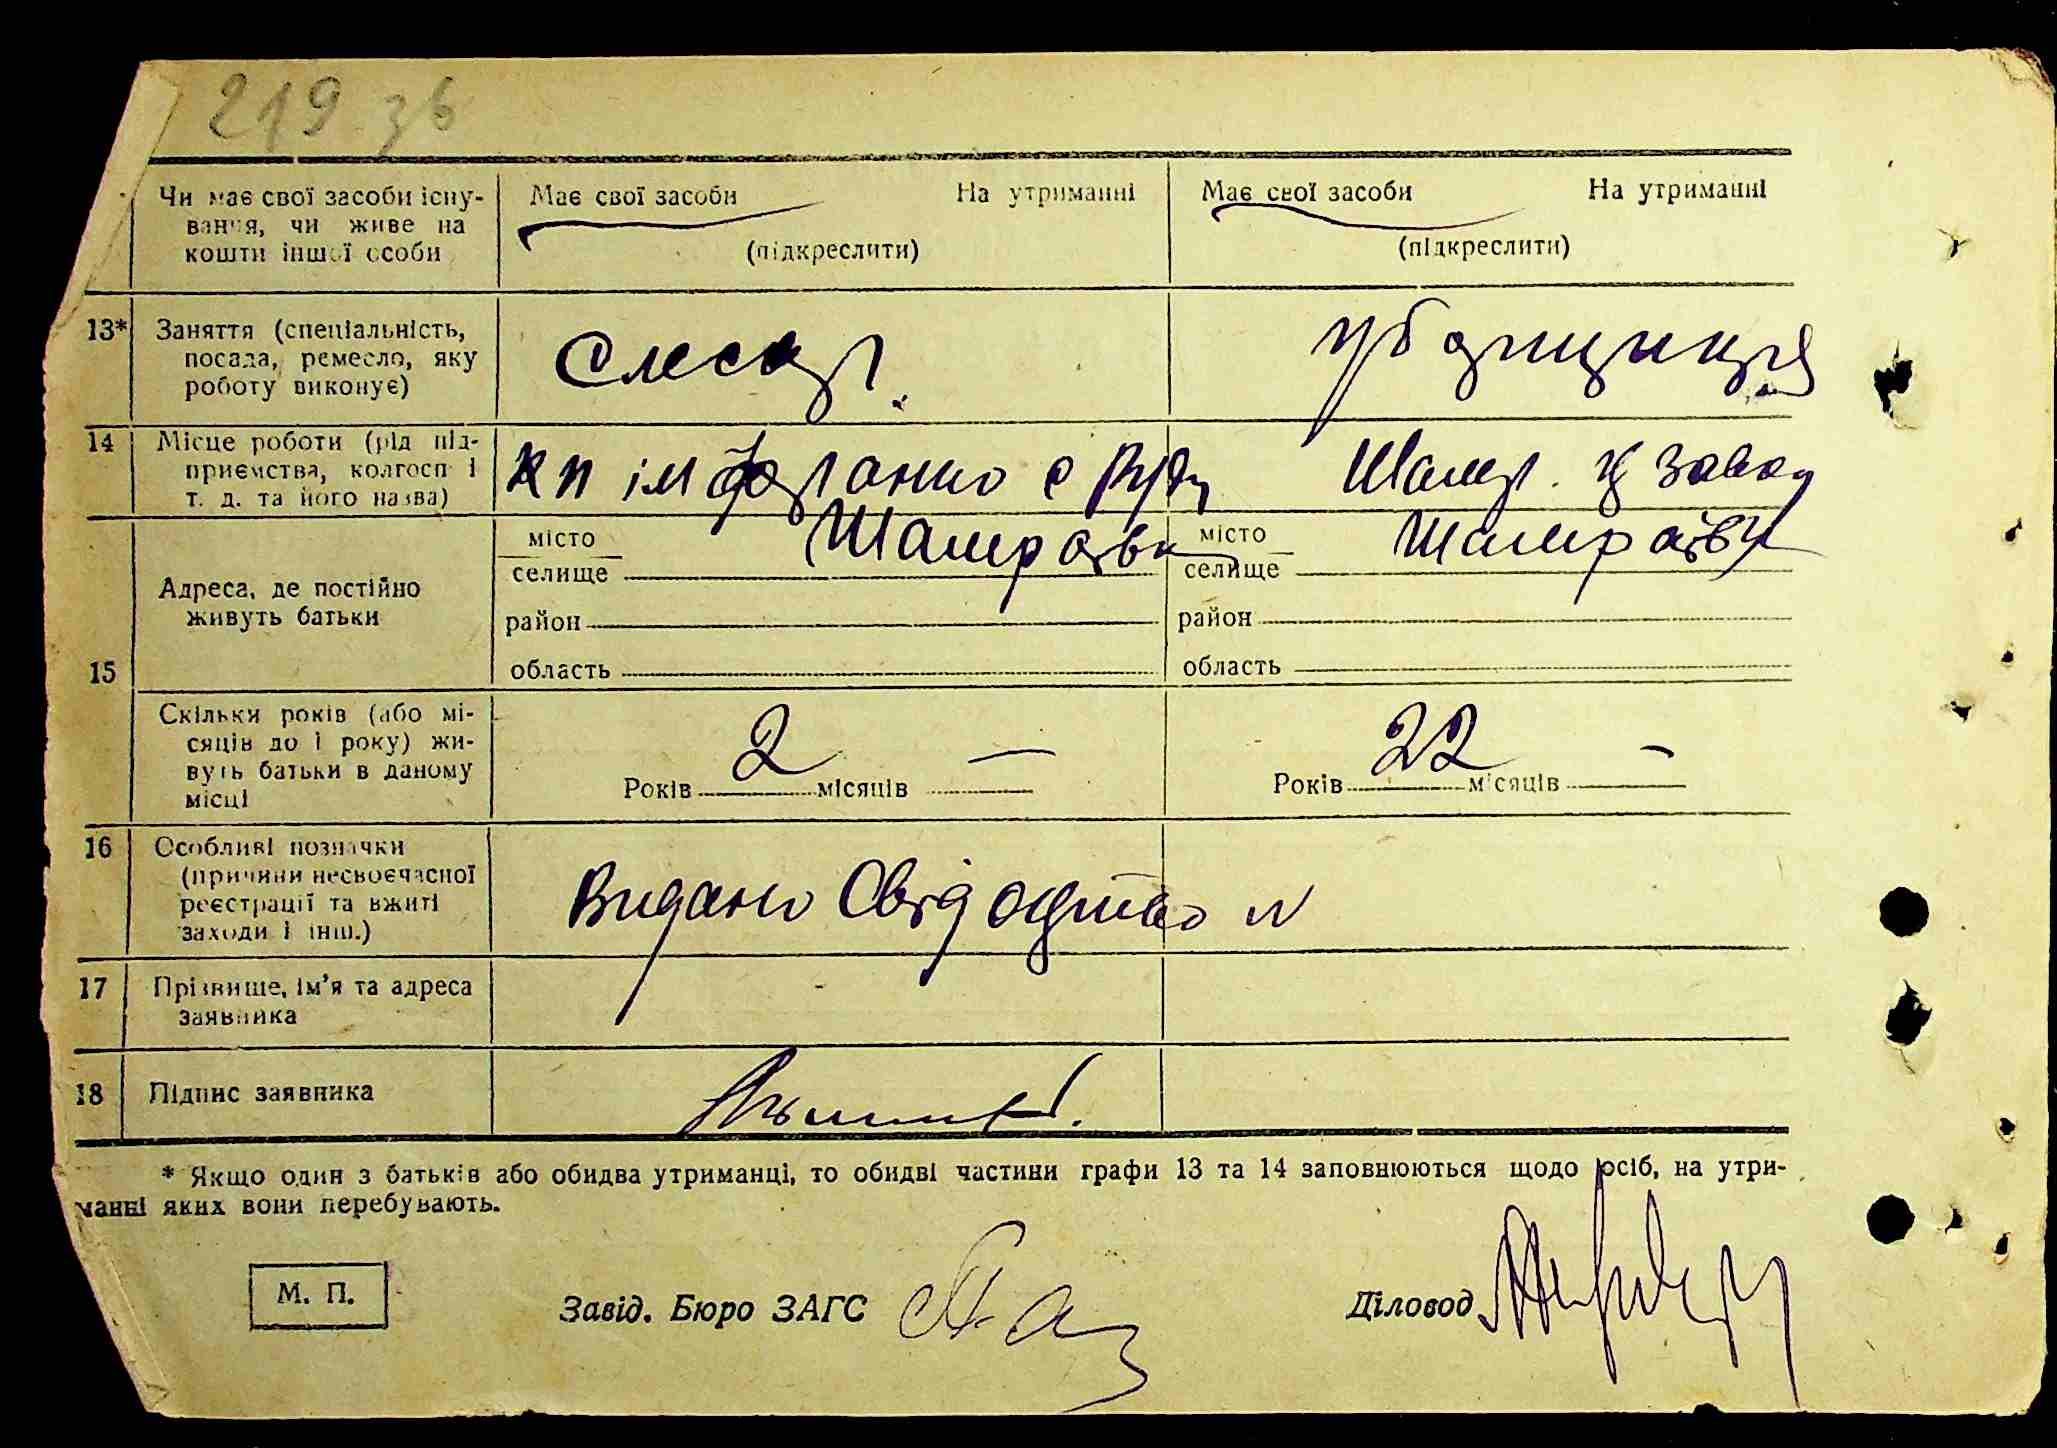 219 зв
Чи має свої засоби існу-
вання, чи живе на
кошти іншої особи
Має свої засоби На утриманні
(підкреслити)
Має свої засоби На утриманні
(підкреслити)
13* Заняття (спеціальність,
посада, ремесло, яку
роботу виконує)
Слесар.
Уборщиця
14 Місце роботи (рід під-
приємства, колгосп і
т. д. та його назва)
ім Франко с Руда
Шамр. ц завод
15 Адреса, де постійно
живуть батьки
місто Шамраївка
селище
район
область
місто Шамраївка
селище
район
область
Скільки років (або мі-
сяців до 1 року) жи-
вуть батьки в даному
місці
Років 2 місяців —
Років 22 місяців —
16 Особливі позначки
(причини несвоєчасної
реєстрації та вжиті
заходи і інш.)
Видано Свідоцтво N
17 Прізвище, ім'я та адреса
заявника
18 Підпис заявника
* Якщо один з батьків або обидва утриманці, то обидві частини графи 13 та 14 заповнюються щодо осіб, на утри-
манні яких вони перебувають.
М. П.
Завід. Бюро ЗАГС
Діловод